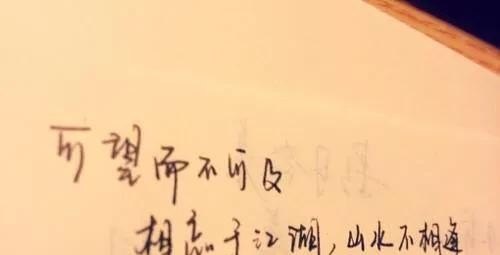 可望而不可及
相忘于江湖,山水不相逢